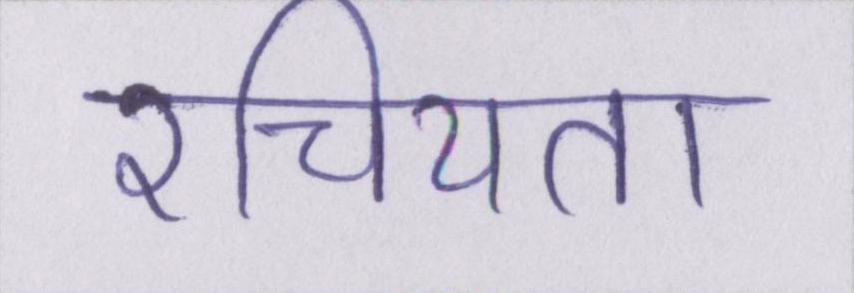 रचियता